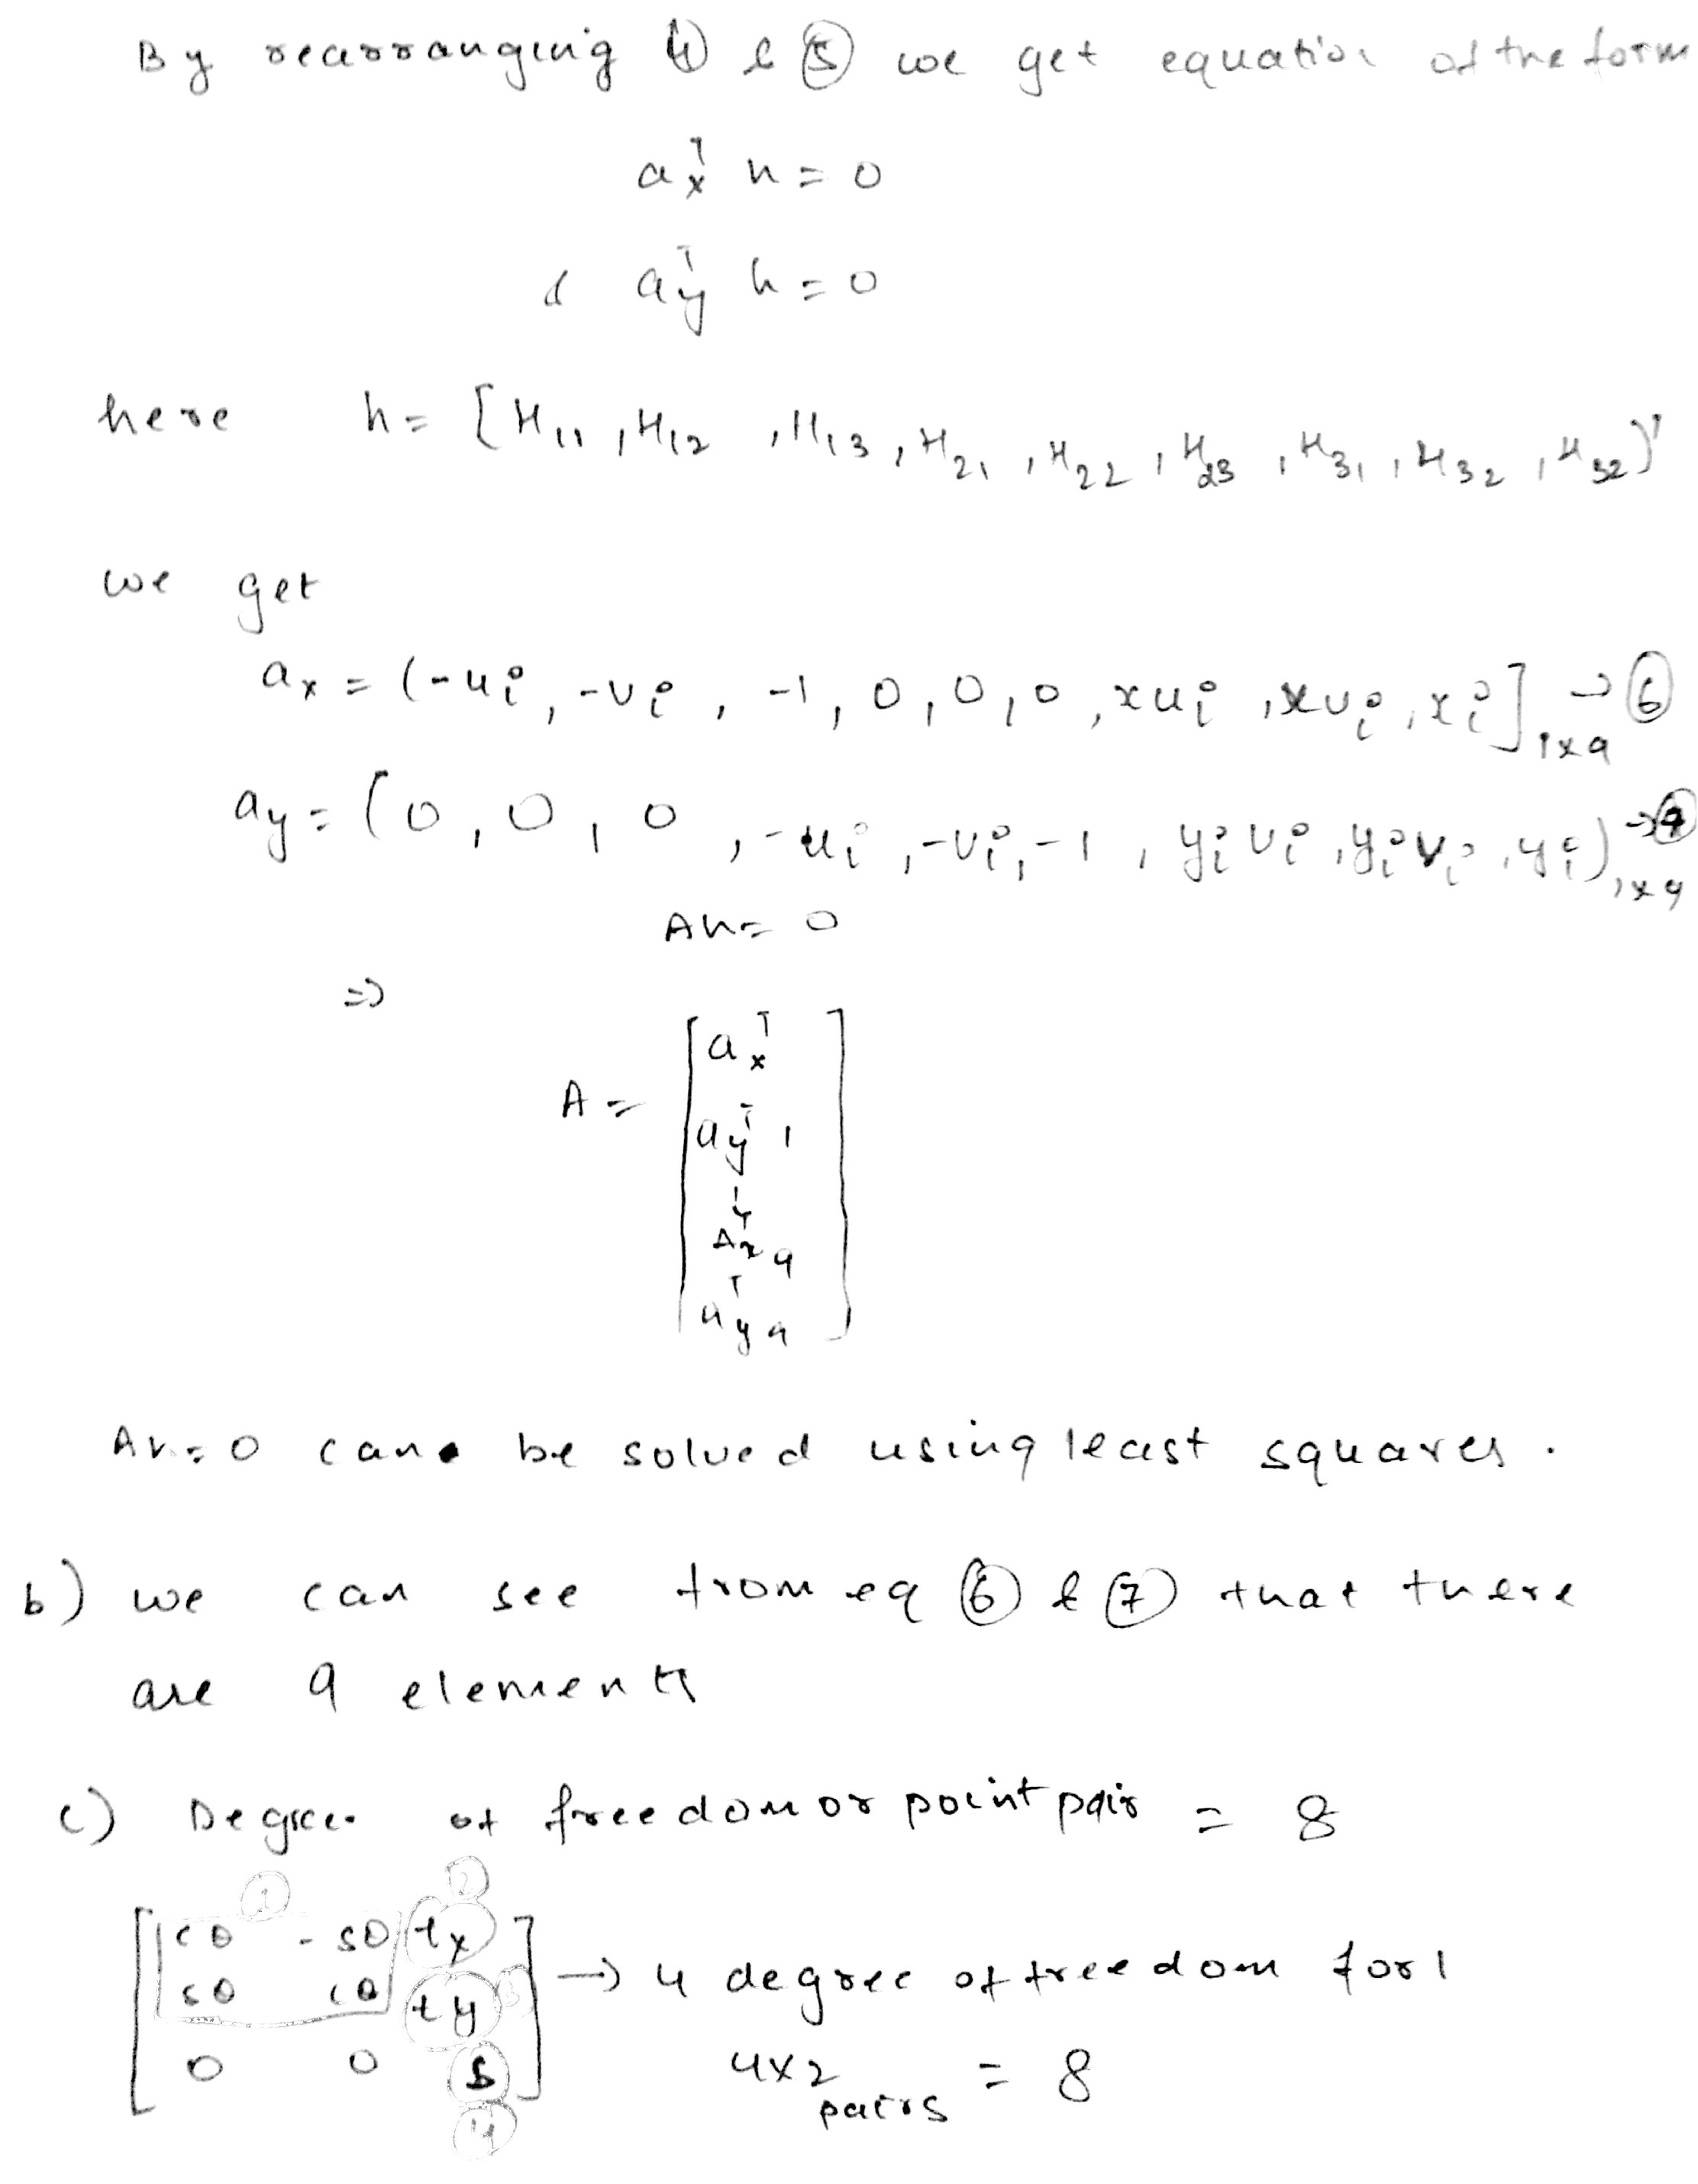 By rearranging ④ & ⑤ we get equation of the form
aₓᵀ h = 0
& a_yᵀ h = 0
here h = [H₁₁, H₁₂, H₁₃, H₂₁, H₂₂, H₂₃, H₃₁, H₃₂, H₃₂)ᵀ
we get
aₓ = (-uᵢ, -vᵢ, -1, 0, 0, 0, xuᵢ, xvᵢ, xᵢ]₁ₓ₉ → ⑥
a_y = (0, 0, 0, -uᵢ, -vᵢ, -1, yᵢvᵢ, yᵢvᵢ, yᵢ)₁ₓ₉ → ⑦
Ah = 0
⇒
A = [aₓᵀ
a_yᵀ 1
a_yᵀ 4]
Ah = 0 can be solved using least squares.
b) we can see from eq ⑥ & ⑦ that there
are 9 elements
c) Degree of freedom or point pair = 8
① ②
[cθ -sθ tx
sθ cθ ty ③] → 4 degree of freedom for 1
0 0 s 4x2 pairs = 8
④